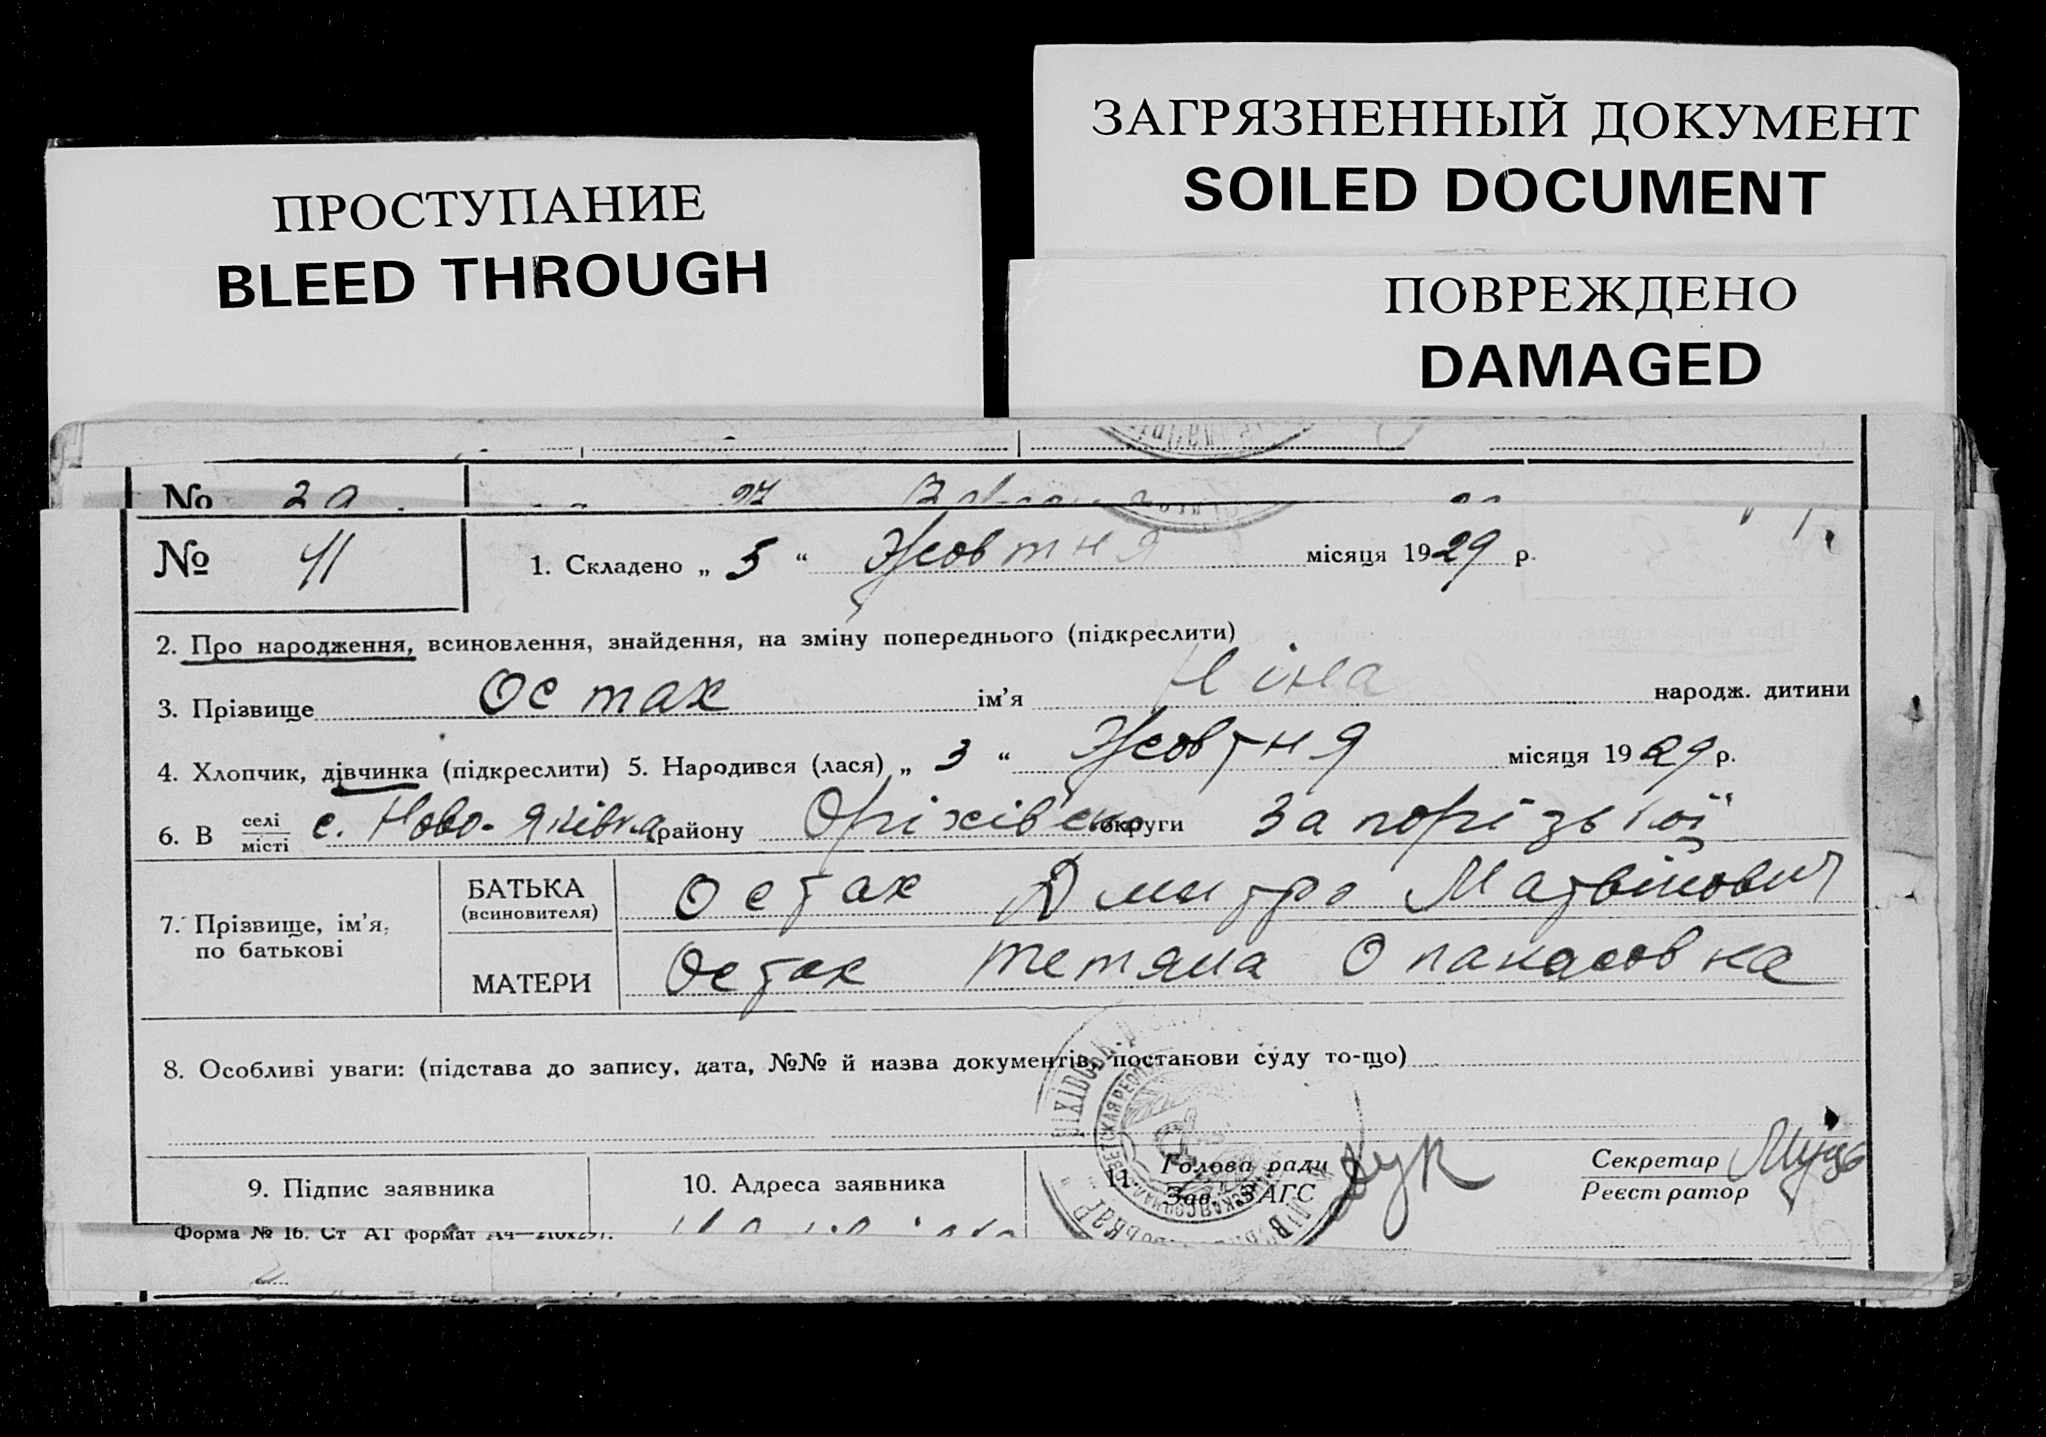 ЗАГРЯЗНЕННЫЙ ДОКУМЕНТ
SOILED DOCUMENT
ПРОСТУПАНИЕ
BLEED THROUGH
ПОВРЕЖДЕНО
DAMAGED
№
№ 41 1. Складено „ 5 “ Жовтня місяця 1929 р.
2. Про народження, всиновлення, знайдення, на зміну попереднього (підкреслити)
3. Прізвище Остах ім’я Ніна народж. дитини
4. Хлопчик, дівчинка (підкреслити) 5. Народився (лася) „ 3 “ Жовтня місяця 1929 р.
6. В селі/місті с. Ново-Яківка району Оріхівско округи Запорізької
7. Прізвище, ім’я, по батькові
БАТЬКА (всиновителя) Остах Дмитро Матвійович
МАТЕРИ Остах Тетяна Опанасовна
8. Особливі уваги: (підстава до запису, дата, №№ й назва документів, постанови суду то-що)
9. Підпис заявника 10. Адреса заявника 11. Голова ради Зав. ЗАГС Секретар Реєстратор
Форма № 16. Ст АТ формат А4—210х297.